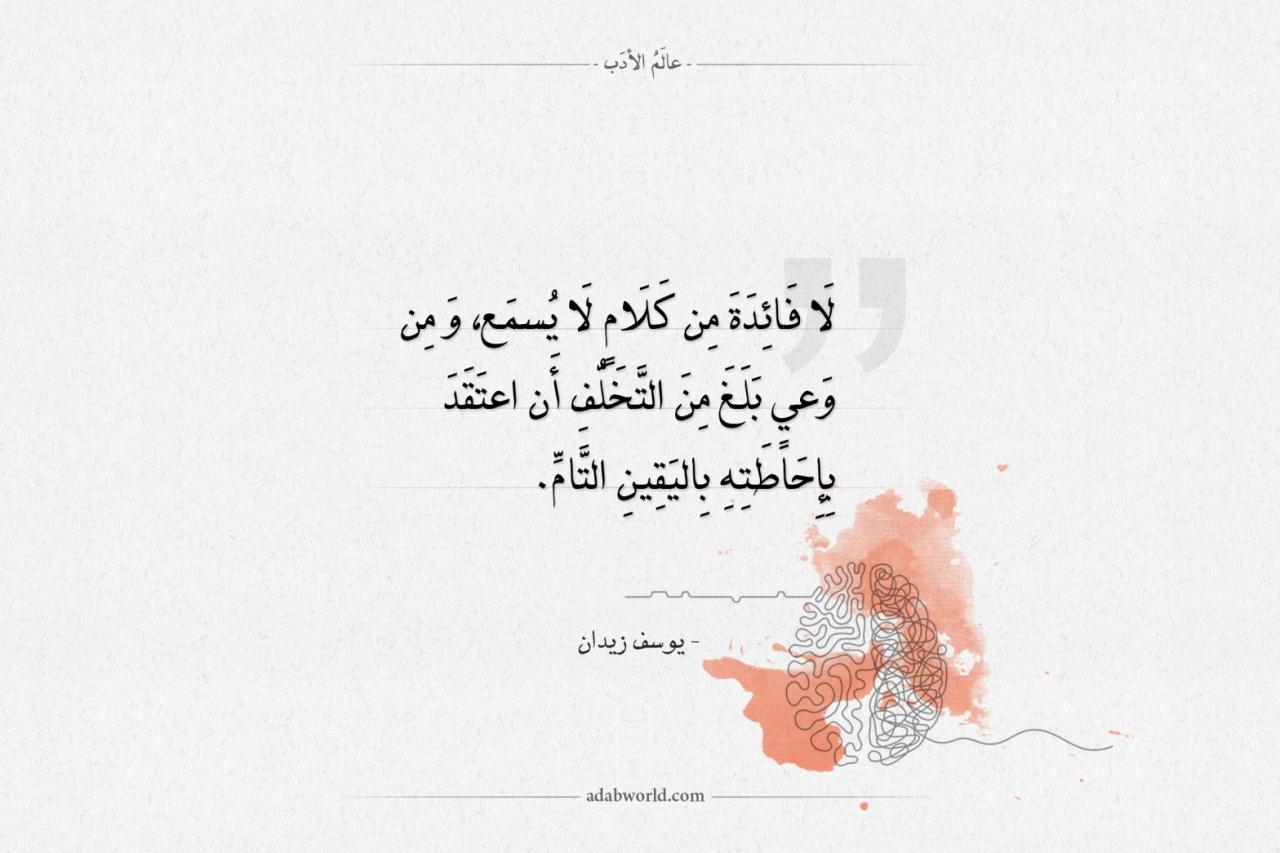 - عالَمُ الأدَب -
لَا فَائِدَةَ مِن كَلَامٍ لَا يُسمَع، وَ مِن
وَعيٍ بَلَغَ مِنَ التَّخَلُّفِ أَن اعتَقَدَ
بِإِحَاطَتِهِ بِاليَقِينِ التَّامِّ.
- يوسف زيدان
adabworld.com